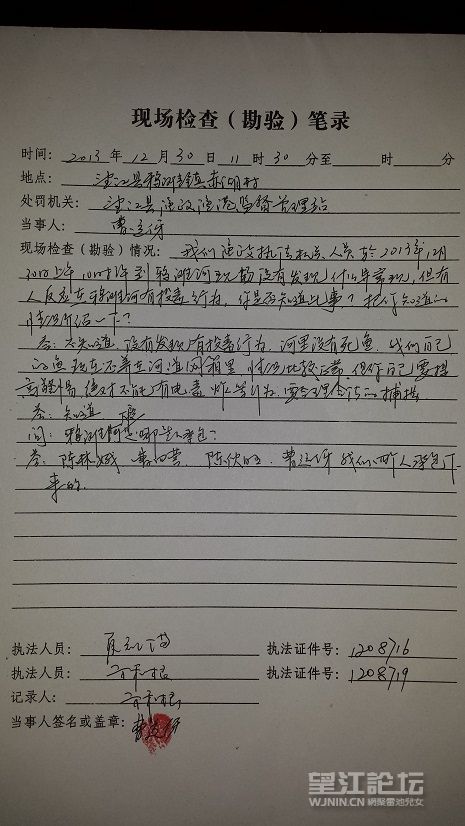 现场检查（勘验）笔录
时间：2013 年 12 月 30 日 11 时 30 分至 时 分
地点：望江县鸦滩镇赤湖村
处罚机关：望江县渔政渔港监督管理站
当事人：曹
现场检查（勘验）情况：我们渔政执法 人员于2013年12月
30日上午10时许到鸦滩河现勘没有发现什么异常现，但有
人反应在鸦滩河有投毒行为，你是否知道此事？把你知道的
情况所说一下？
答：不知道 没有发现有投毒行为，河里没有死鱼，我们自己
的鱼现在还养在河道网箱里 情况比较正常 但你自己要提
高警惕 绝对不能有电毒 炸等行为，要合理合法的捕捞
答：知道
问：鸦滩河是哪些 承包？
答：陈林 陈 曹 我们四人承包下
来的。
执法人员： 执法证件号：1208716
执法人员： 执法证件号：1208719
记录人：
当事人签名或盖章：曹
望江論坛
WJNIN.CN 網聚雷池兒女